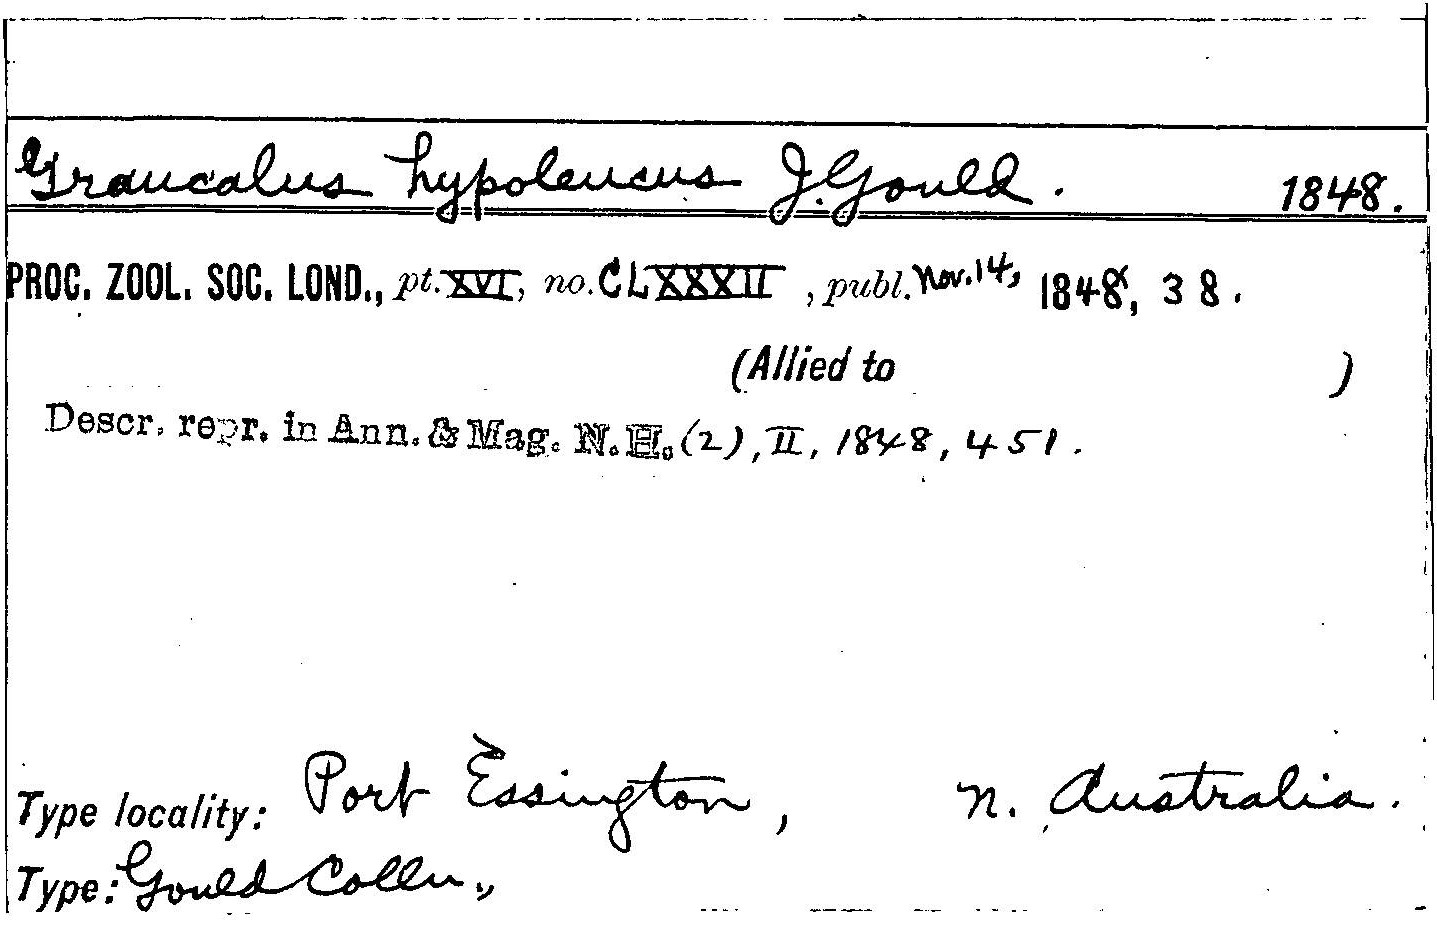 Graucalus hypoleucus J. Gould. 1848.
PROC. ZOOL. SOC. LOND., pt. XVI, no. CLXXXII , publ. Nov. 14, 1848, 38.
(Allied to )
Descr. repr. in Ann. & Mag. N. H. (2), II, 1848, 451.
Type locality: Port Essington, n. Australia.
Type: Gould Colln.,